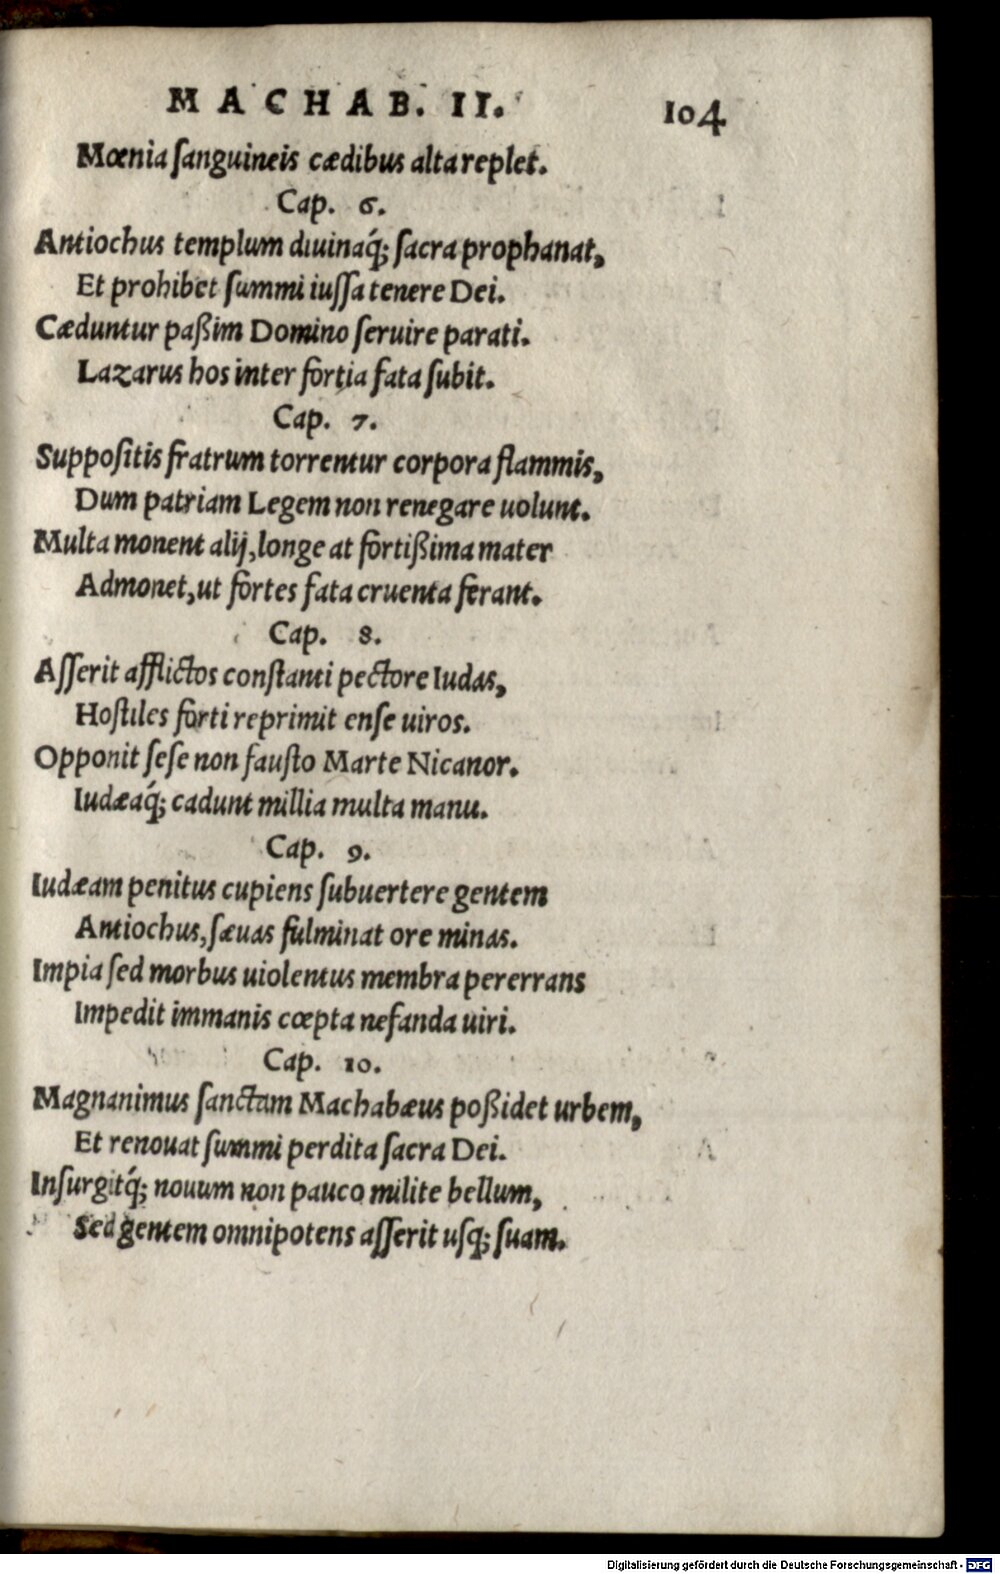 MACHAB. II. 104
Mœnia ſanguineis cædibus alta replet.
Cap. 6.
Antiochus templum diuinaq́; ſacra prophanat,
Et prohibet ſummi iuſſa tenere Dei.
Cæduntur paßim Domino ſeruire parati.
Lazarus hos inter fortia fata ſubit.
Cap. 7.
Suppoſitis fratrum torrentur corpora flammis,
Dum patriam Legem non renegare uolunt.
Multa monent alij, longe at fortißima mater
Admonet, ut fortes fata cruenta ferant.
Cap. 8.
Aſſerit afflictos conſtanti pectore Iudas,
Hoſtiles forti reprimit enſe uiros.
Opponit ſeſe non fauſto Marte Nicanor.
Iudæaq́; cadunt millia multa manu.
Cap. 9.
Iudæam penitus cupiens ſubuertere gentem
Antiochus, ſæuas fulminat ore minas.
Impia ſed morbus uiolentus membra pererrans
Impedit immanis cœpta nefanda uiri.
Cap. 10.
Magnanimus ſanctam Machabæus poßidet urbem,
Et renouat ſummi perdita ſacra Dei.
Inſurgitq́; nouum non pauco milite bellum,
Sed gentem omnipotens aſſerit uſq; ſuam.
Digitalisierung gefördert durch die Deutsche Forschungsgemeinschaft - DFG